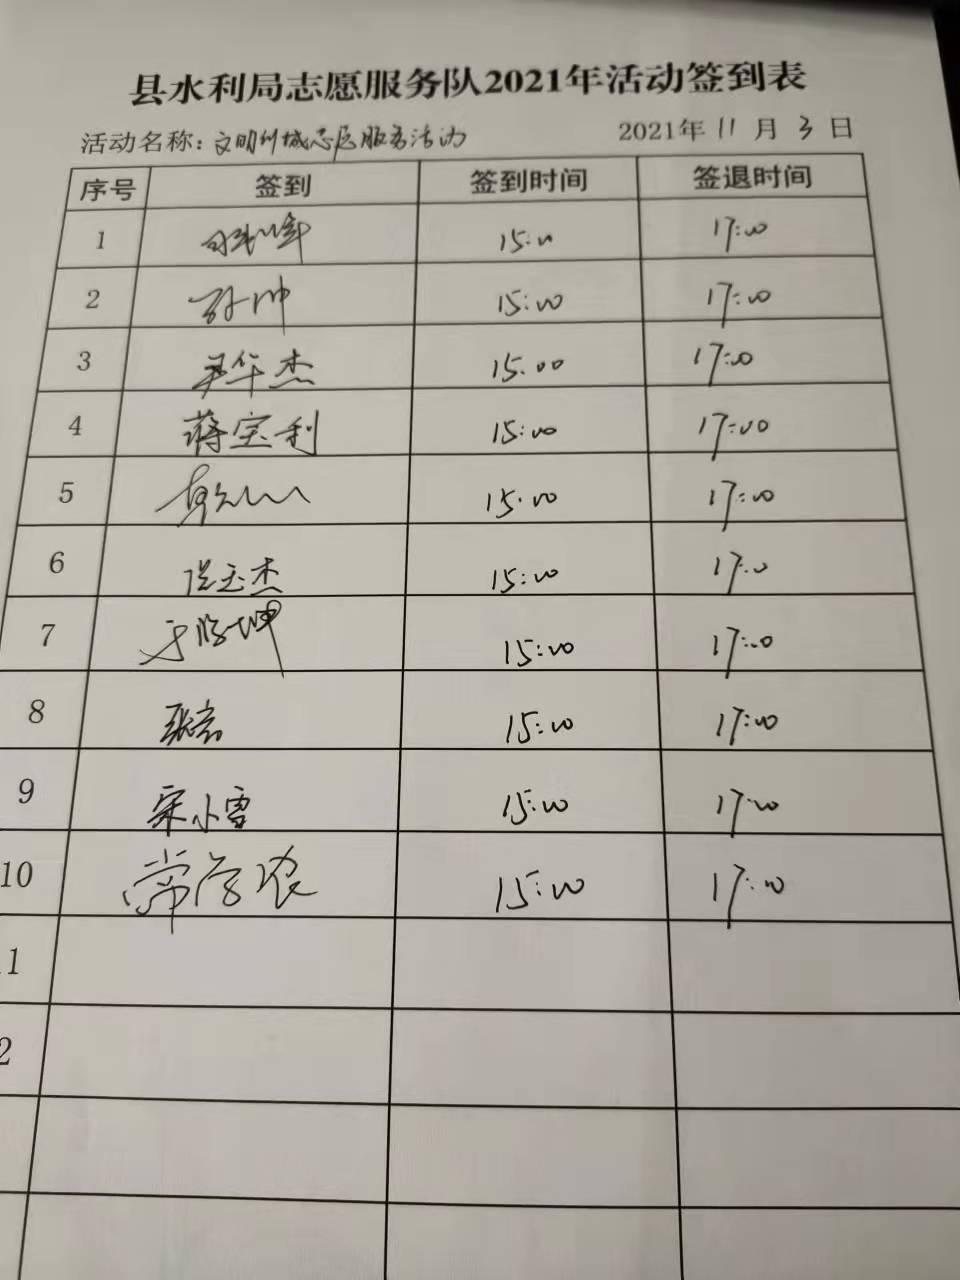 县水利局志愿服务队2021年活动签到表
活动名称：文明创城志愿服务活动 2021年 11 月 3 日
序号 签到 签到时间 签退时间
1 15:00 17:00
2 孙帅 15:00 17:00
3 尹华杰 15:00 17:00
4 蒋宝利 15:00 17:00
5 15:00 17:00
6 张玉杰 15:00 17:00
7 15:00 17:00
8 15:00 17:00
9 宋小雪 15:00 17:00
10 常学农 15:00 17:00
1
2